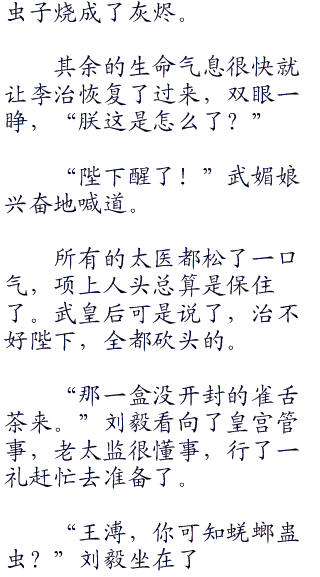 虫子烧成了灰烬。
其余的生命气息很快就
让李治恢复了过来，双眼一
睁，“朕这是怎么了？”
“陛下醒了！”武媚娘
兴奋地喊道。
所有的太医都松了一口
气，项上人头总算是保住
了。武皇后可是说了，治不
好陛下，全都砍头的。
“那一盒没开封的雀舌
茶来。”刘毅看向了皇宫管
事，老太监很懂事，行了一
礼赶忙去准备了。
“王溥，你可知蜣螂蛊
虫？”刘毅坐在了